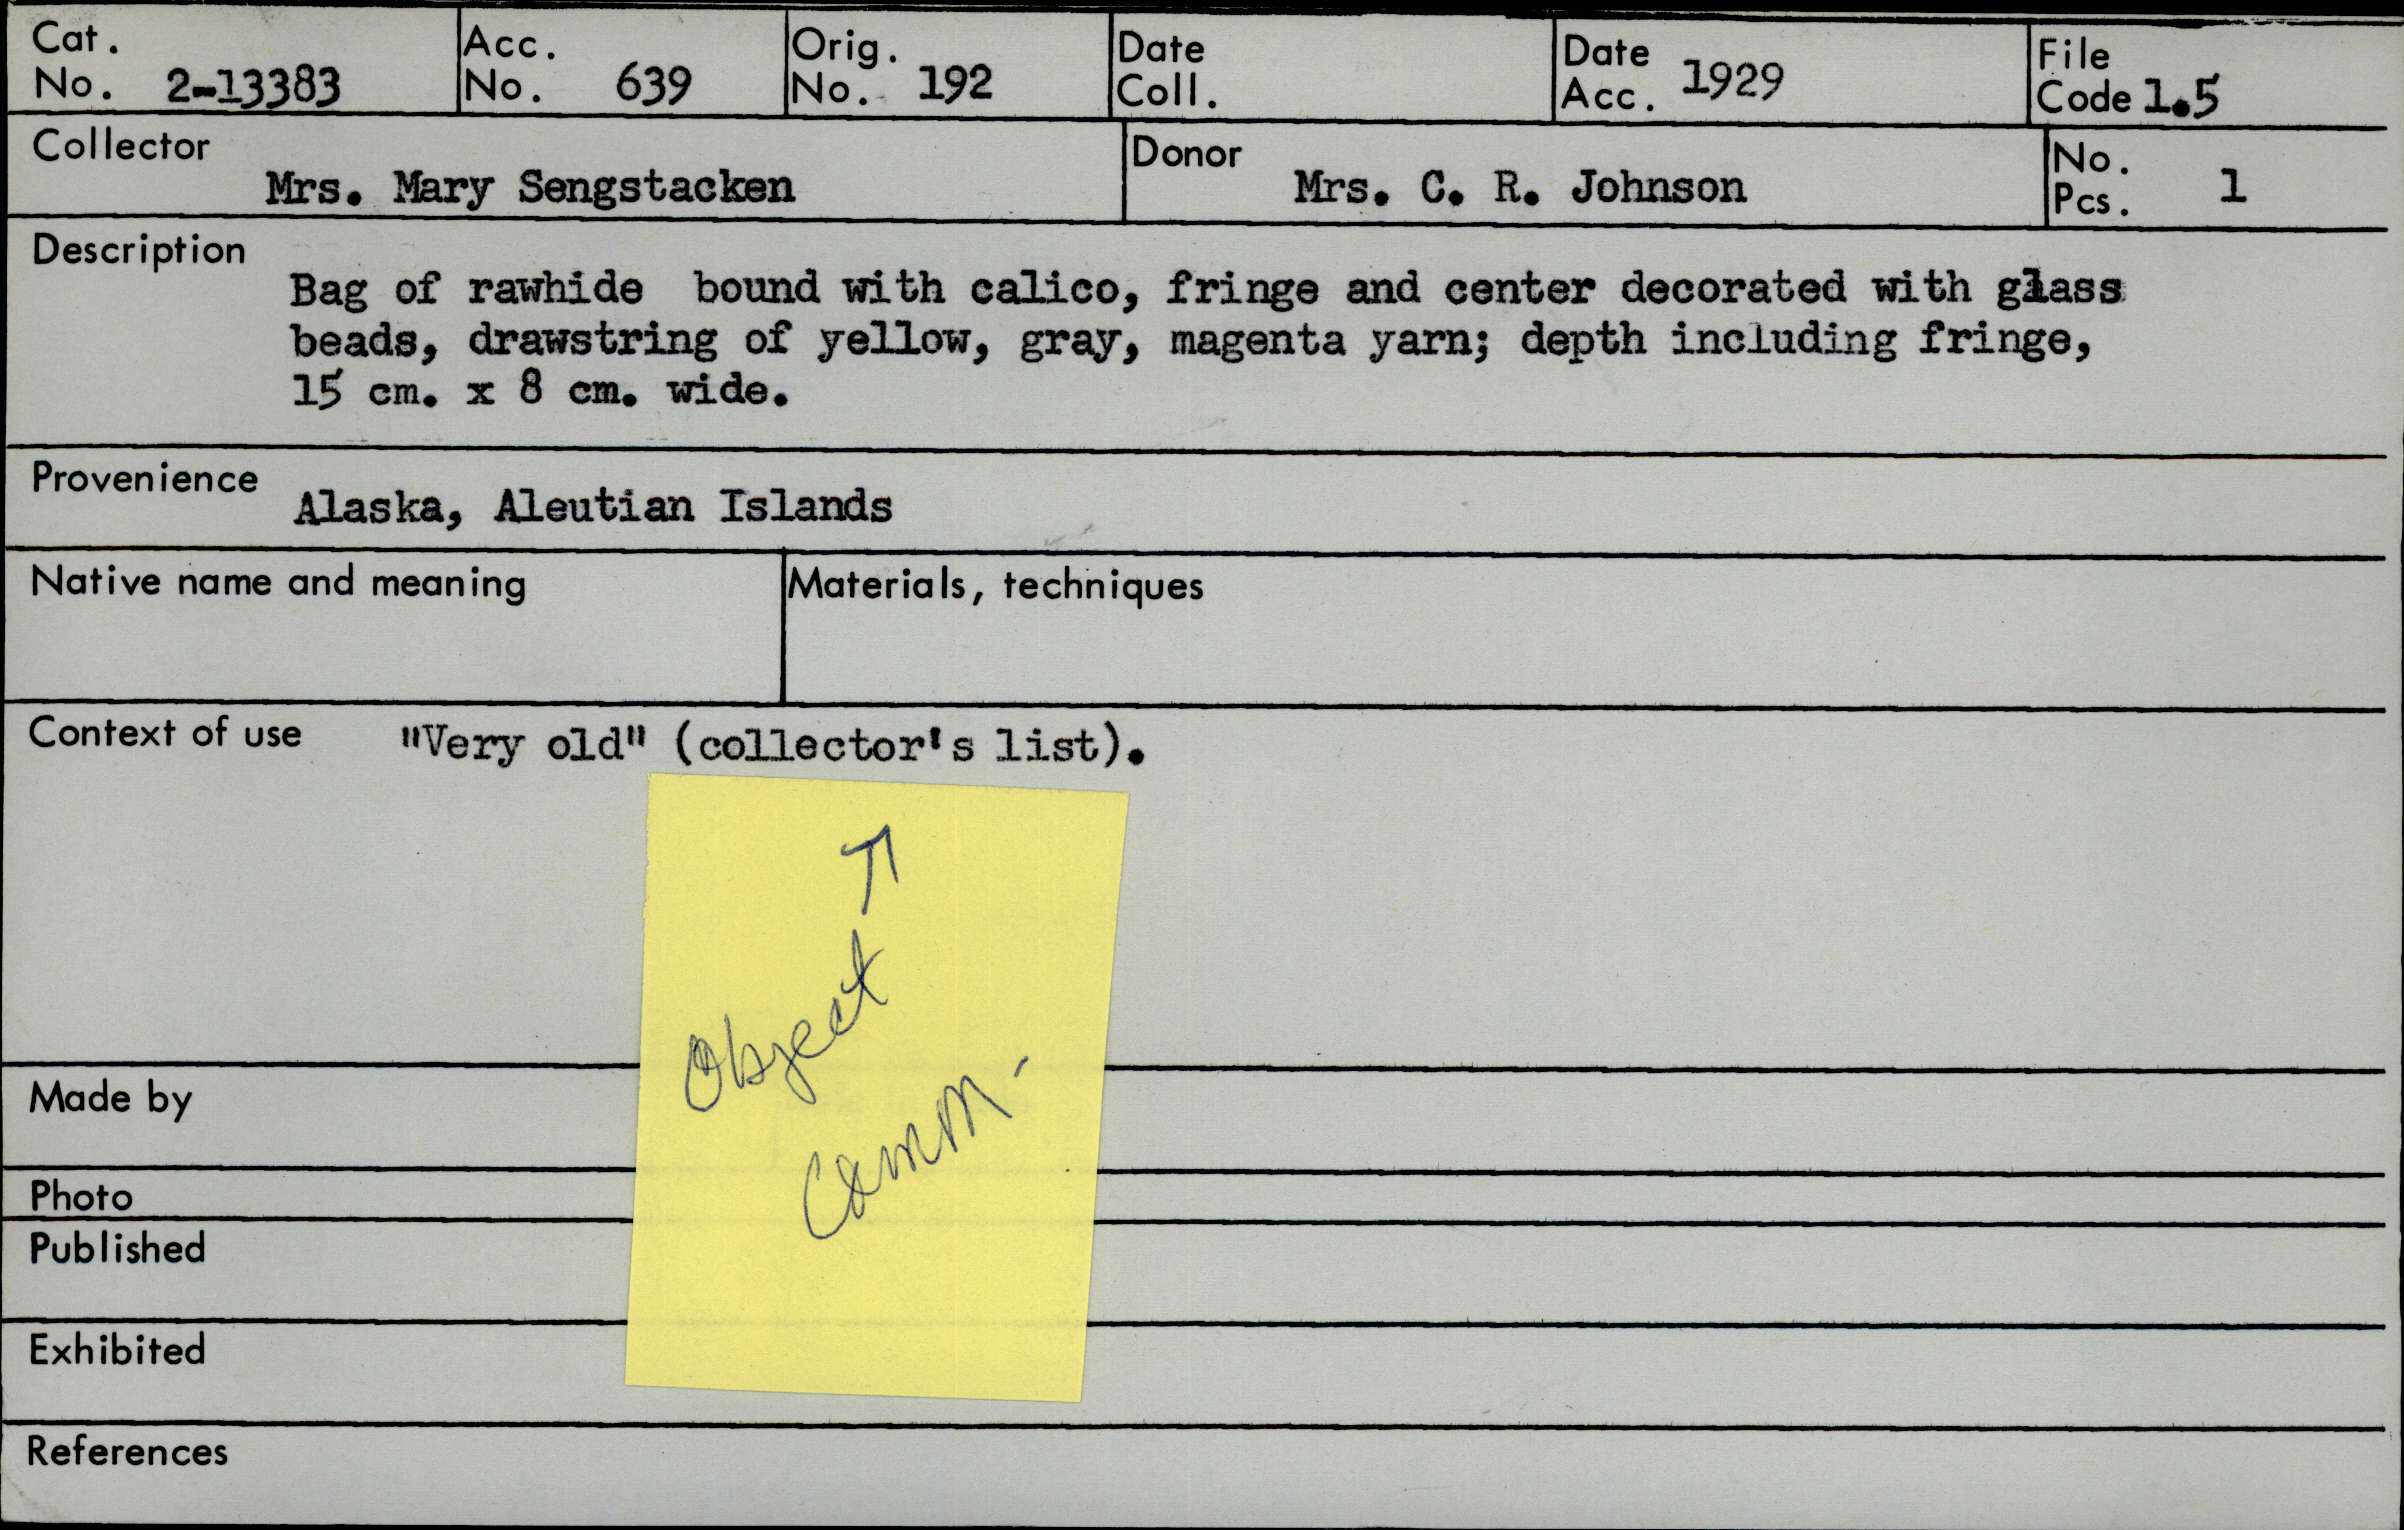 Cat. No. 2-13383
Acc. No. 639
Orig. No. 192
Date Coll.
Date Acc. 1929
File Code 1.5
Collector Mrs. Mary Sengstacken
Donor Mrs. C. R. Johnson
No. Pcs. 1
Description
Bag of rawhide bound with calico, fringe and center decorated with glass
beads, drawstring of yellow, gray, magenta yarn; depth including fringe,
15 cm. x 8 cm. wide.
Provenience Alaska, Aleutian Islands
Native name and meaning
Materials, techniques
Context of use "Very old" (collector's list).
Object ↗
Comm.
Made by
Photo
Published
Exhibited
References